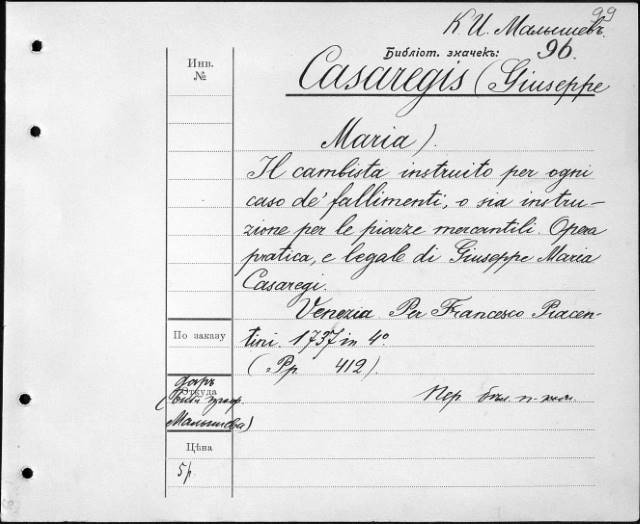 99
К И. Малышевъ.
Библіот. значекъ: 96.
Инв.
№
Casaregis (Giuseppe
Maria).
Il cambista instruito per ogni
caso de' fallimenti, o sia instru-
zione per le piazze mercantili. Opera
pratica, e legale di Giuseppe Maria
Casaregi.
Venezia. Per Francesco Piacen-
По заказу
tini. 1737 in 4º
(Pp. 412).
даръ
Откуда
Малышева)
Цѣна
5 р